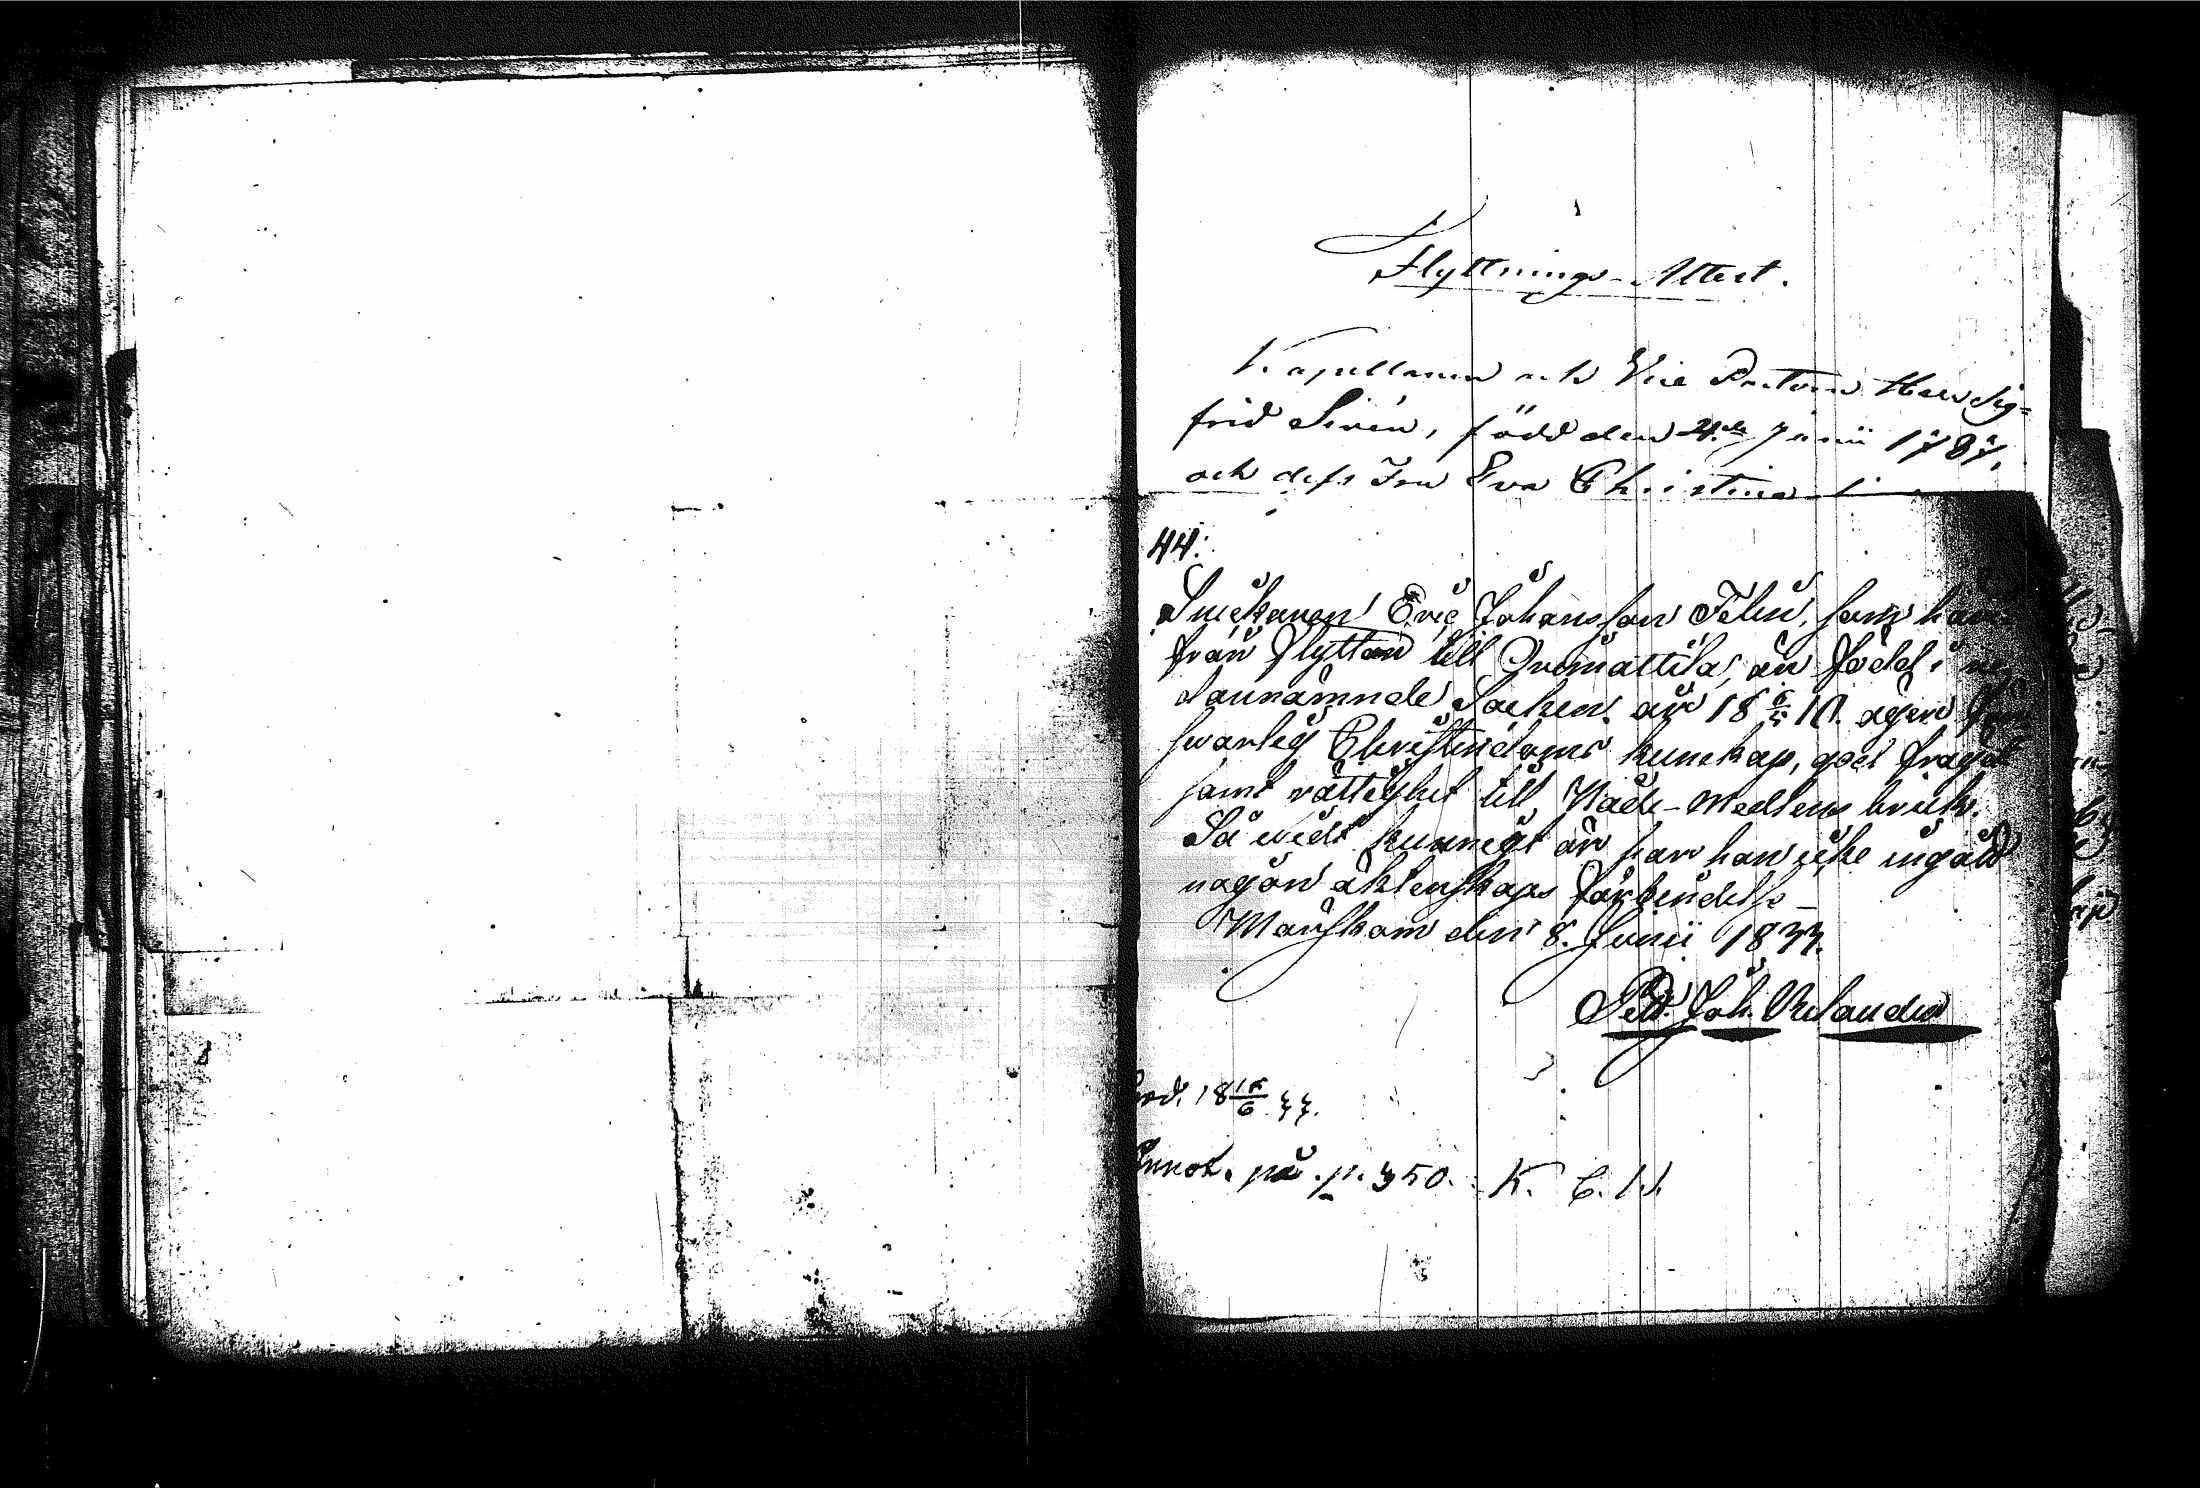 Flyttnings-Attest.
Kapellanen och Vice Pastorn Herr Sig=
frid Sirén, född den 4de Junii 1787,
och dess Fru Eva Christina
44:
Snickaren Eric Johansson Felin, som här
från flyttar till Qvimattila, är född i
dannämnde Socken år 18 6/5 10. äger för
svarlig Christendoms kunskap, god fragd
samt rättighet till Nåde-Medlens bruk.
Så widt kunnigt är har han icke ingått
någon äktenskaps förbindelse
Mariskam den 8. Junii 1833.
Pet. Joh. Relander
prod. 18 15/6 33.
Annot. på p. 350. K. C. W.